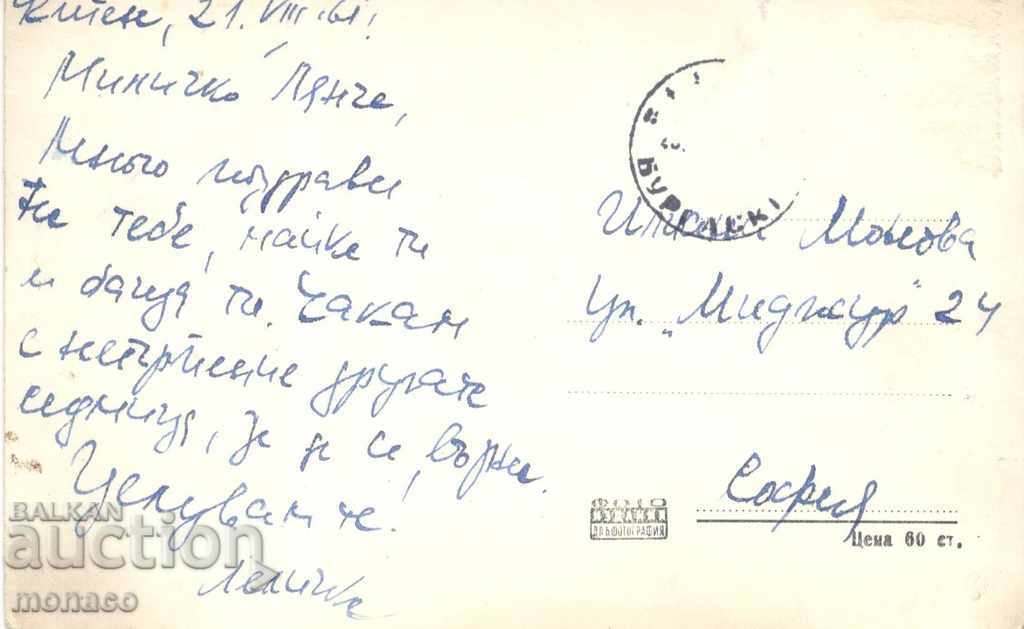 Китен, 21. VIII. 61.
Миничко Лянче,
Много поздрави
на тебе, майка ти
и баща ти. Чакам
с нетърпение другата
седмица, за да се върна.
Целувам те!
Леличка
БУРГАСКИ
Монова
ул. "Миджур" 24
София
ФОТО
ДПФОТОГРАФИЯ
Цена 60 ст.
BALKAN
auction
monaco